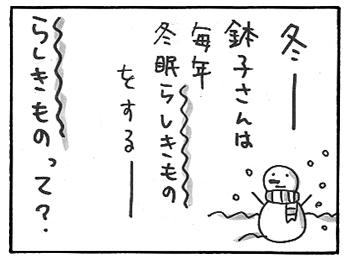 冬——
鉢子さんは
毎年
冬眠らしきもの
をする——
らしきものって？